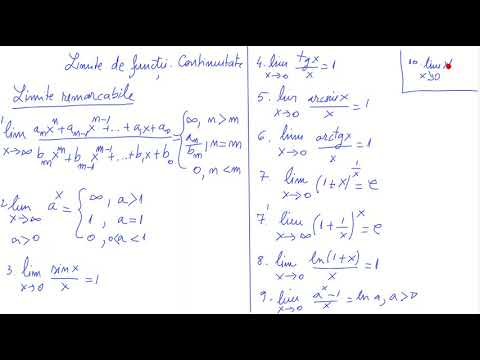 Limite de funcții. Continuitate
Limite remarcabile
1. lim x→∞ (aₙxⁿ + aₙ₋₁xⁿ⁻¹ + ... + a₁x + a₀)/(bₘxᵐ + bₘ₋₁xᵐ⁻¹ + ... + b₁x + b₀) = { ∞, n>m
aₙ/bₘ, n=m
0, n<m
2. lim x→∞ aˣ = { ∞, a>1
1, a=1
0, 0<a<1
a>0
3. lim x→0 sin x/x = 1
4. lim x→0 tg x/x = 1
5. lim x→0 arcsin x/x = 1
6. lim x→0 arctg x/x = 1
7. lim x→0 (1+x)^(1/x) = e
7' lim x→∞ (1+1/x)ˣ = e
8. lim x→0 ln(1+x)/x = 1
9. lim x→0 (aˣ-1)/x = ln a, a>0
10 lim x↘0